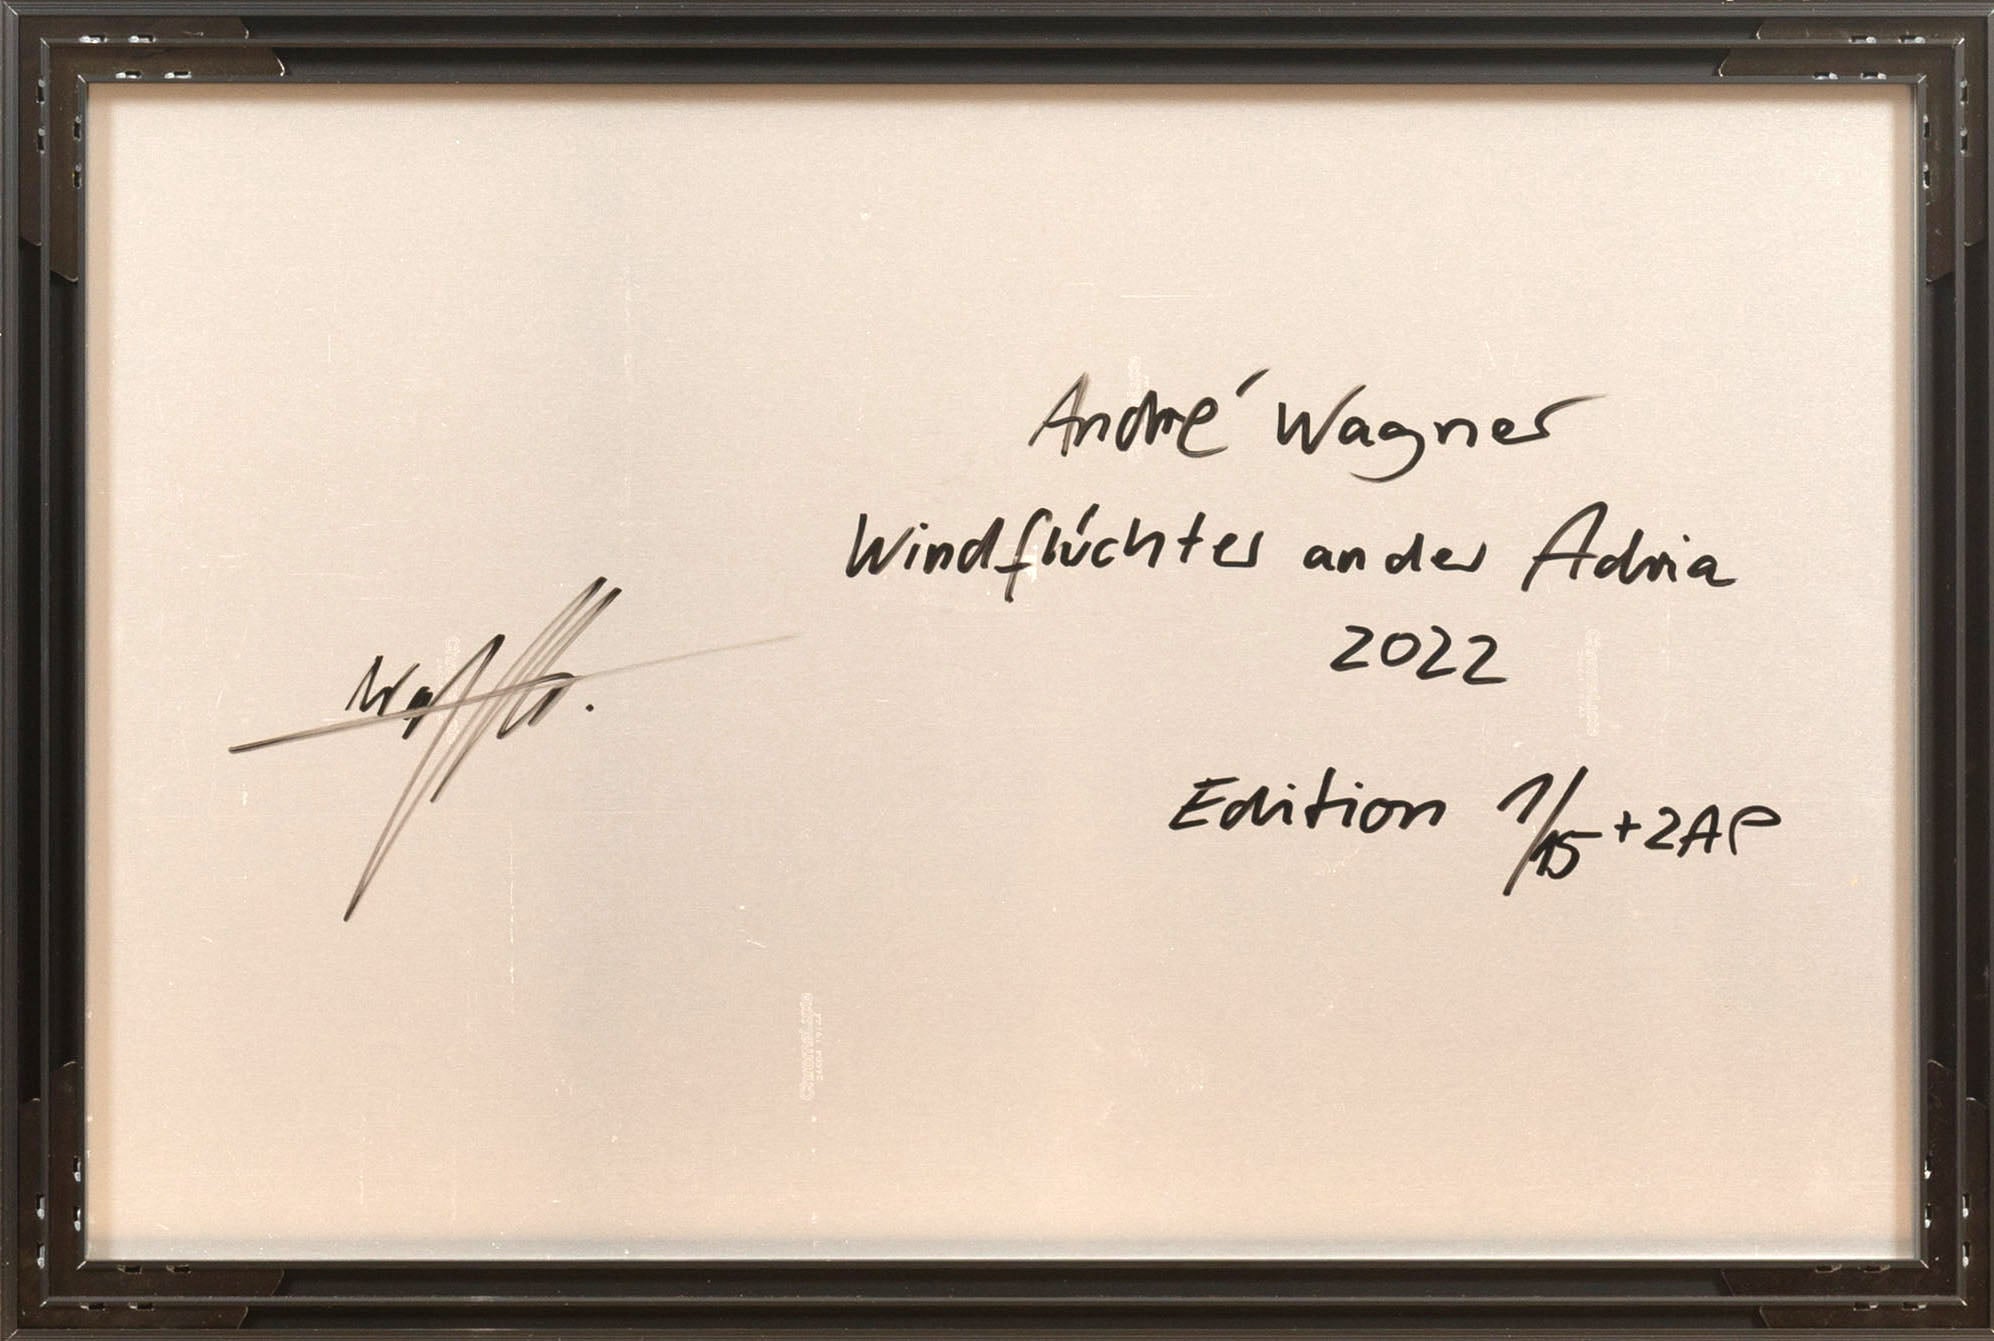 André Wagner
Windflüchter an der Adria
2022
Edition 1/15 + 2AP